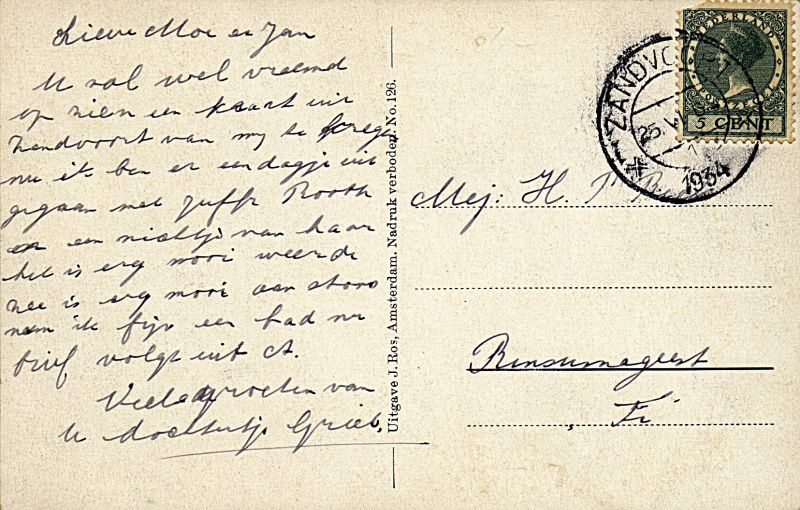 Lieve Moe en Jan
U zal wel vreemd
op zien een kaart uit
Zandvoort van my te kregen
nu ik ben er een dagje uit
gegaan met Juffr Rooth
en een nichtje van haar
het is erg mooi weer de
zee is erg mooi aan stons
nem ik fijn een bad nu
brief volgt uit A.
Veele groeten van
U dochtertje Griet.
Uitgave J. Ros, Amsterdam. Nadruk verboden. No. 126.
NEDERLAND
POSTZEGEL
5 CENT
ZANDVOORT
25.VI
1934
Mej: H.
Rinsumageest
Fr